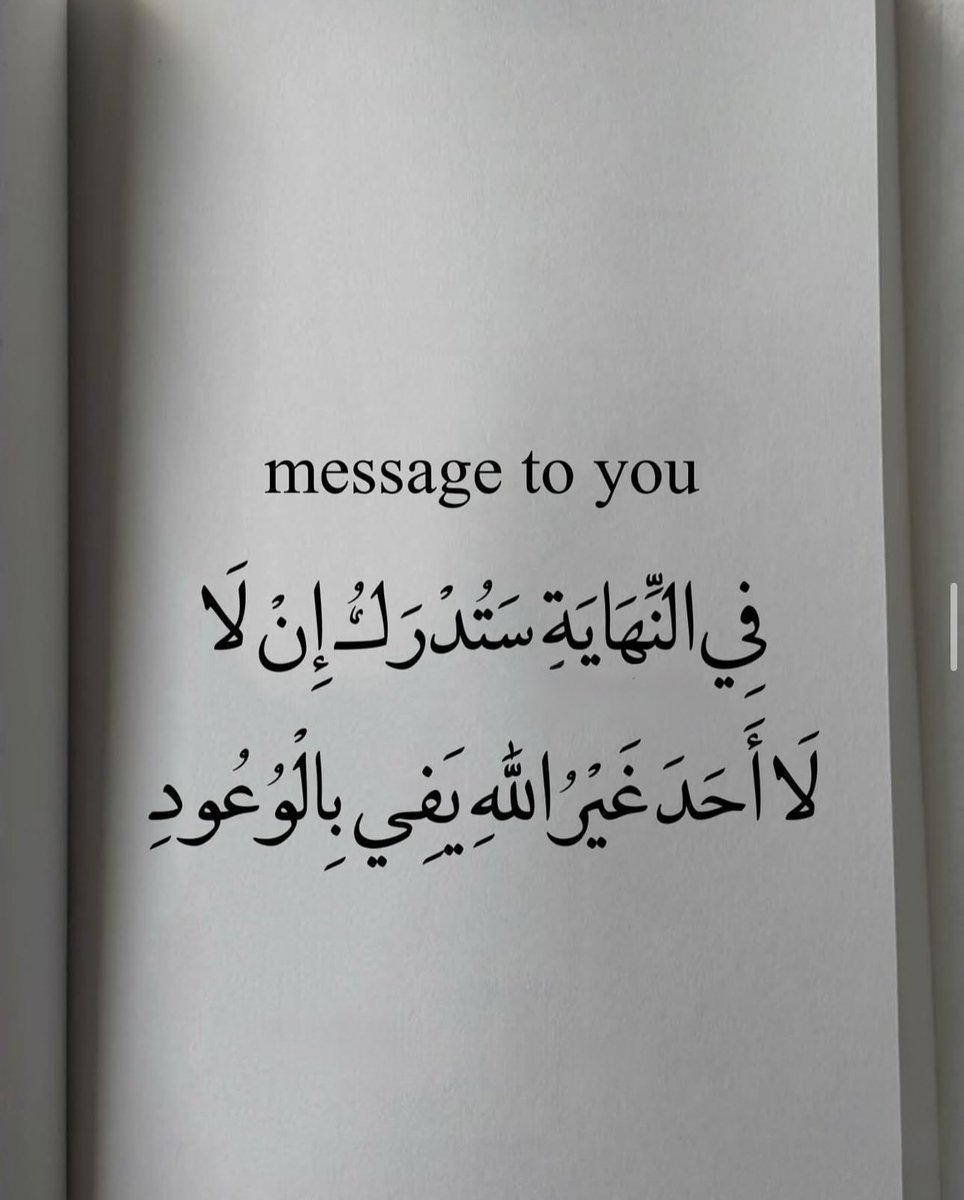 message to you
فِي النِّهَايَةِ سَتُدْرَكُ إِنْ لَا
لَا أَحَدَ غَيْرُ اللَّهِ يَفِي بِالْوُعُودِ